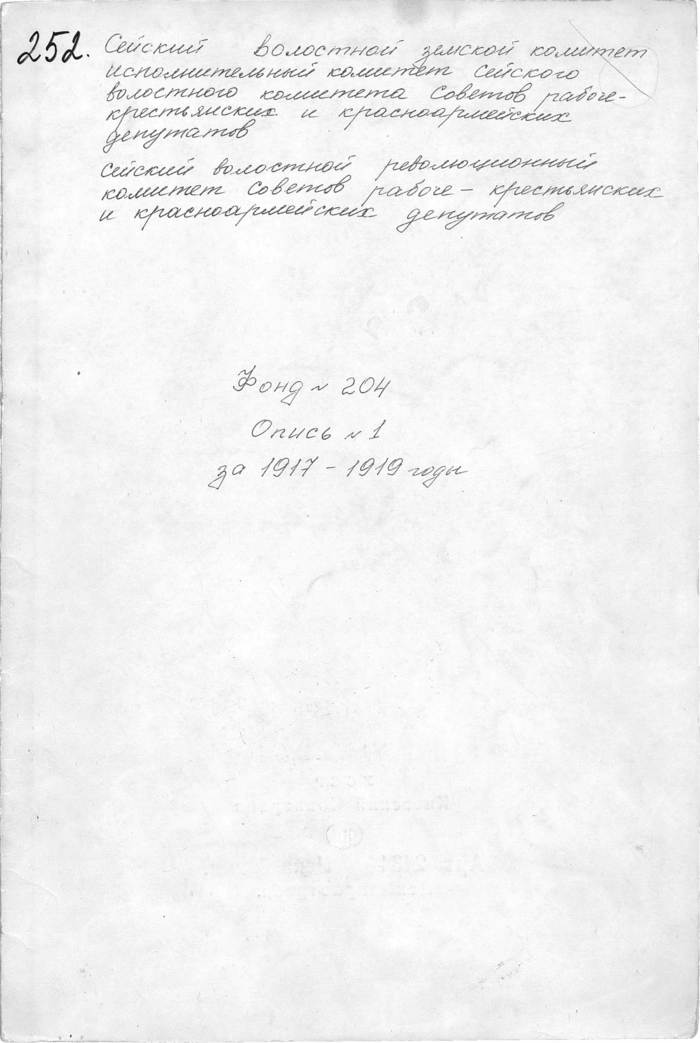 252. Сейский волостной земской комитет
исполнительный комитет Сейского
волостного комитета Советов рабоче-
крестьянских и красноармейских
депутатов
Сейский волостной революционный
комитет Советов рабоче - крестьянских
и красноармейских депутатов
Фонд № 204
Опись № 1
за 1917 - 1919 годы